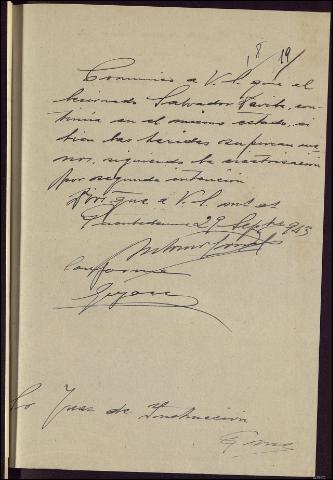 18/19
Comunico a V. S. que el
lesionado Salvador con-
tinúa en el mismo estado, si
bien las heridas supuran me
nos, siguiendo la cicatrización
por segunda intención
Dios gue a V. S. ms as
29 Septe 943
Antonio
Conforme
Sr Juez de Instrucción